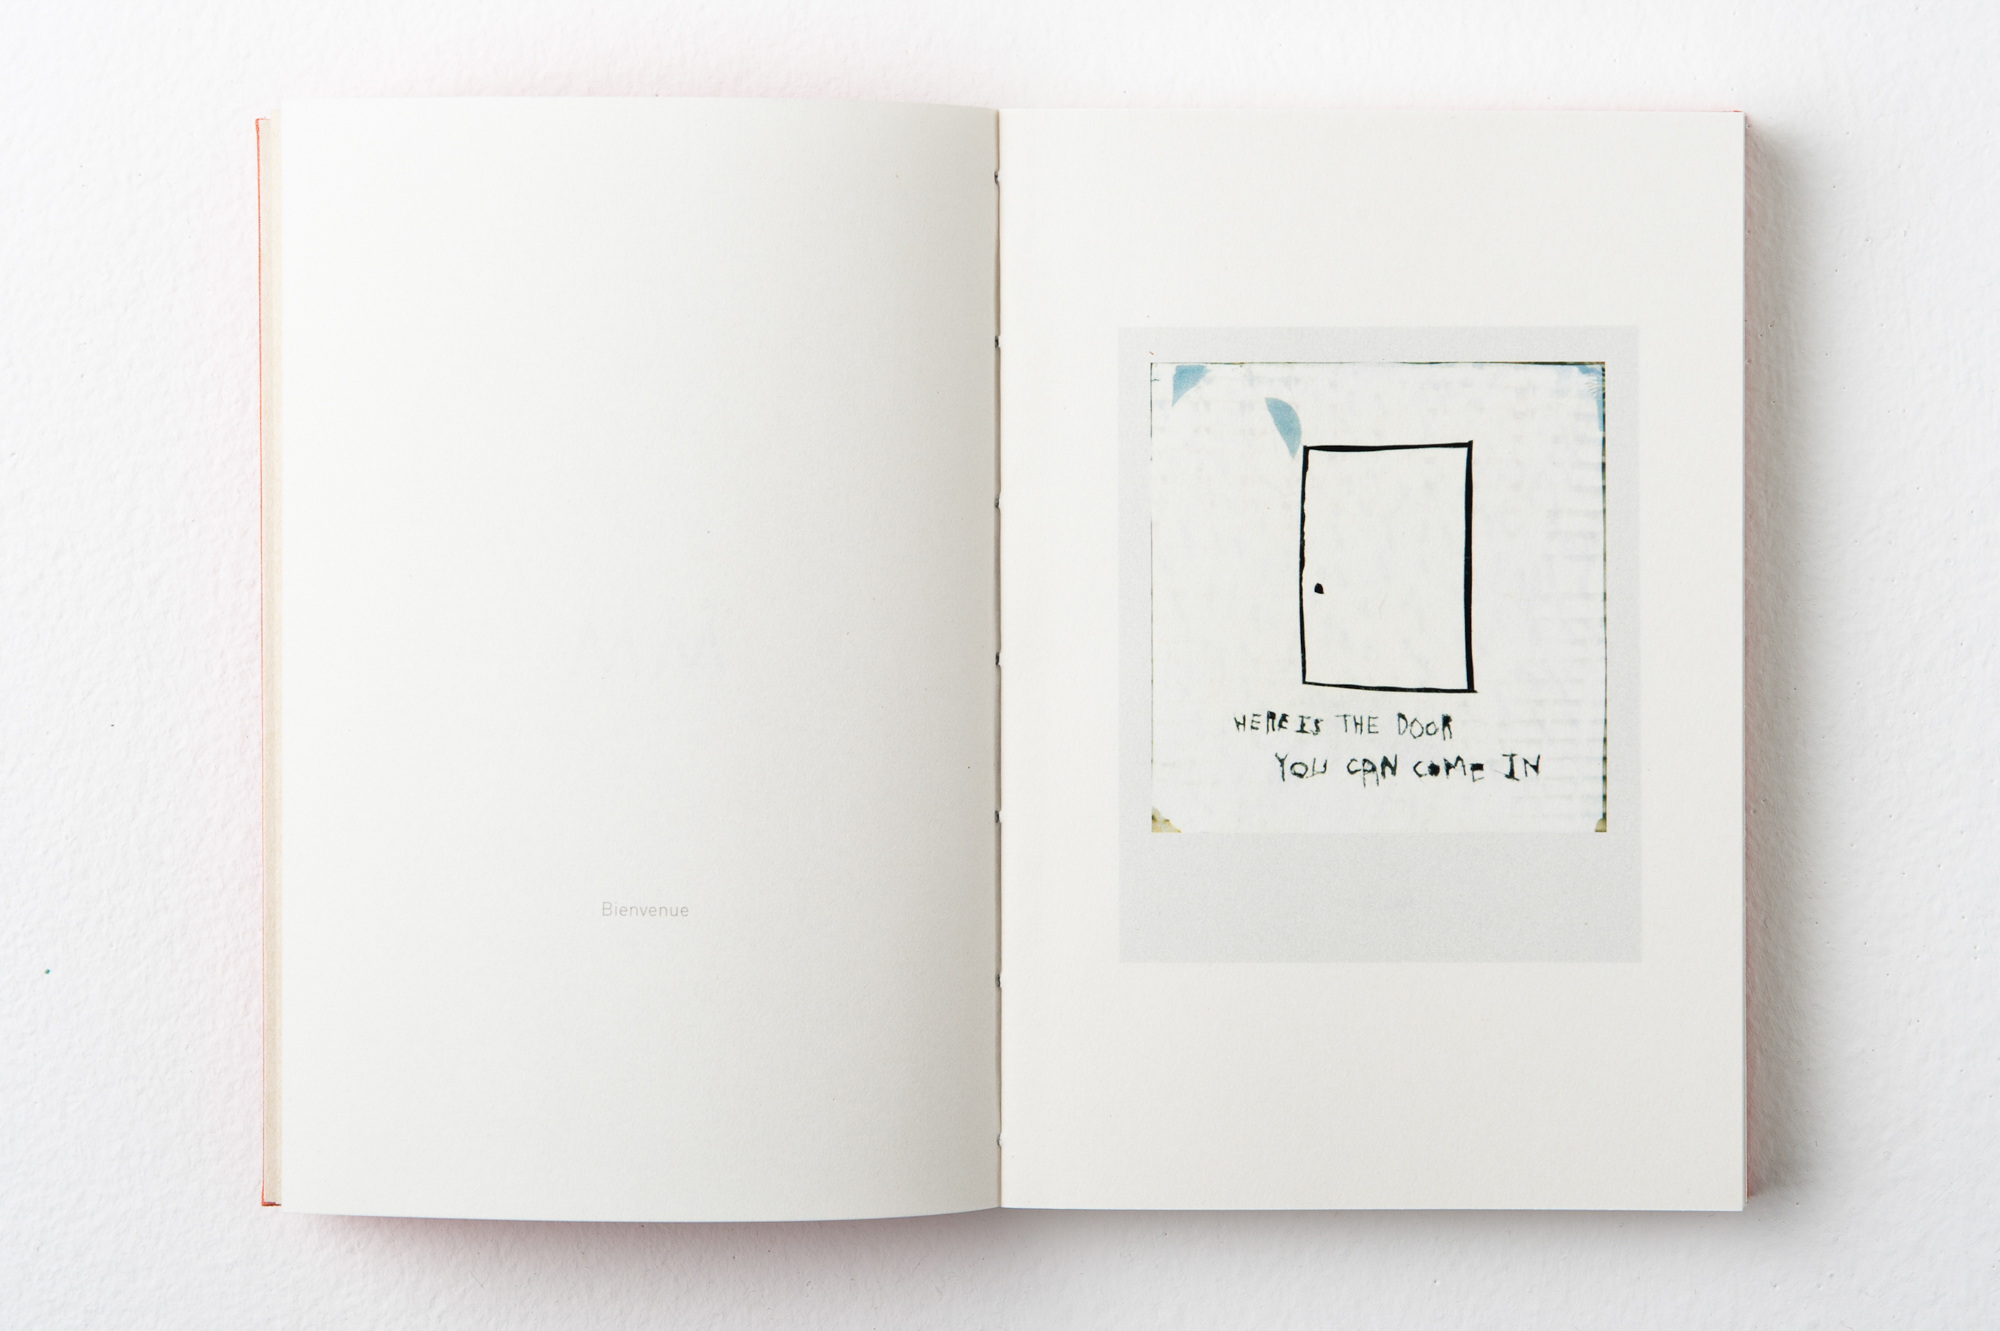 Bienvenue
HERE IS THE DOOR
YOU CAN COME IN